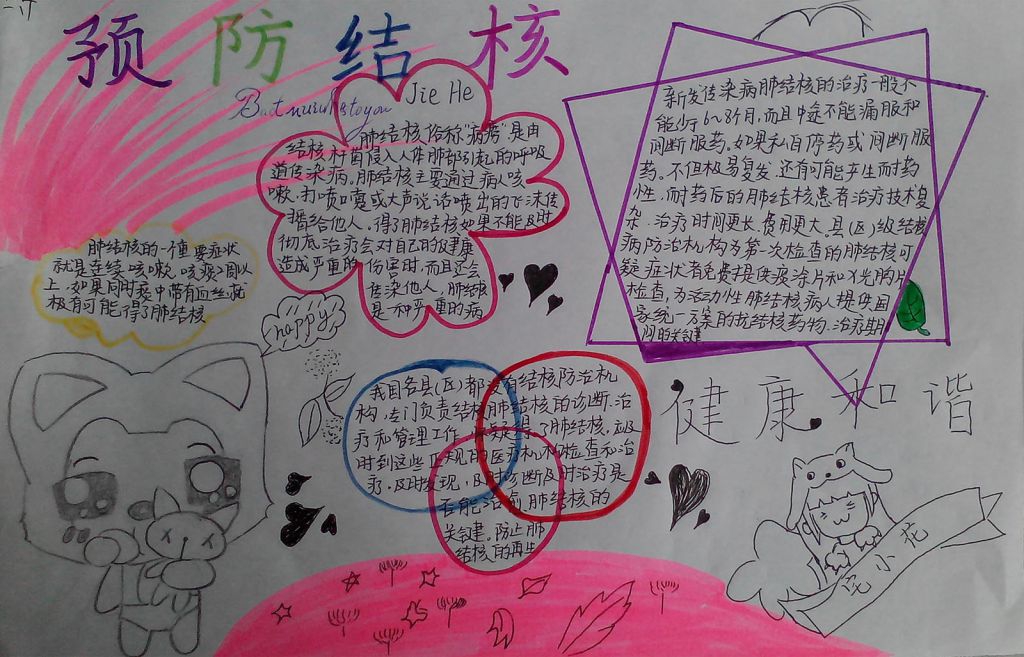 预防结核
Jie He
肺结核俗称"病痨"是由
结核杆菌侵入人体肺部引起的呼吸
道传染病。肺结核主要通过病人咳
嗽、打喷嚏或大声说话喷出的飞沫传
播给他人,得了肺结核如果不能及时
彻底治疗会对自己的健康
造成严重的伤害时,而且还会
传染他人,肺结核
是一种严重的病
新发传染病肺结核的治疗一般不
能少于6~8个月,而且中途不能漏服和
间断服药。如果私自停药或间断服
药。不但极易复发,还有可能产生耐药
性,而耐药后的肺结核患者治疗技术复
杂.治疗时间更长,费用更大.县(区)级结核
病防治机构为第一次检查的肺结核可
疑症状者免费提供痰涂片和X光胸片
检查,为活动性肺结核病人提供国
家统一方案的抗结核药物.治疗期
间的关键
肺结核的一个重要症状
就是连续咳嗽,咳痰2周以
上,如果同时痰中带有血丝,就
极有可能得了肺结核
happy!
我国各县(区)都设有结核防治机
构,专门负责结核肺结核的诊断.治
疗和管理工作.怀疑得了肺结核,应及
时到这些正规的医疗机构检查和治
疗,及时发现,及时诊断及时治疗是
否能治愈肺结核的
关键。防止肺
结核的再生
健康和谐
宅小花